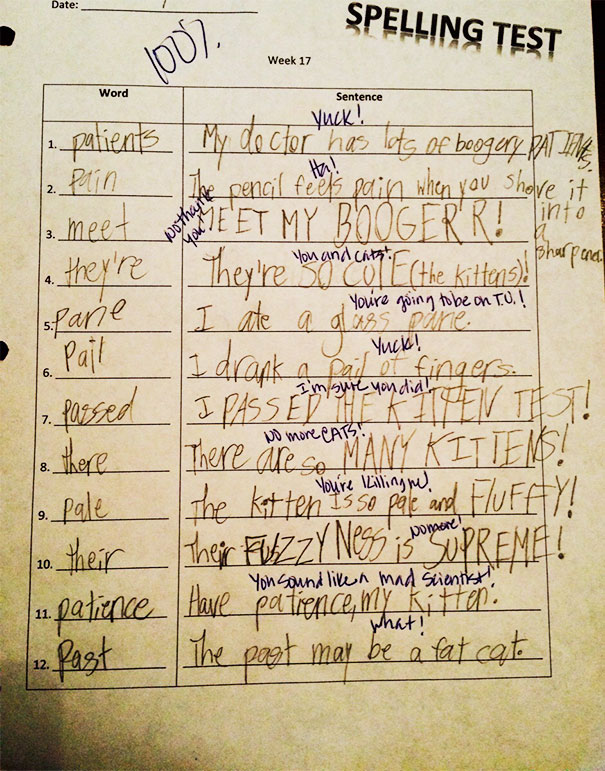 Date:
SPELLING TEST
100%
Week 17
Word Sentence
Yuck!
1. patients My doctor has lots of boogery PATIENTS.
Ha!
2. Pain The pencil feels pain when you shove it into a sharpener.
No thank you!
3. meet MEET MY BOOGER'R!
You and cats!
4. they're They're SO CUTE (the kittens)!
You're going to be on T.V.!
5. pane I ate a glass pane.
Yuck!
6. Pail I drank a pail of fingers.
I'm sure you did!
7. passed I PASSED THE KITTEN TEST!
No more CATS!
8. there There are so MANY KITTENS!
You're killing me!
9. pale The kitten is so pale and FLUFFY!
No more!
10. their Their FUZZYNess is SUPREME!
You sound like a mad scientist!
11. patience Have patience, my kitten.
What!
12. Past The past may be a fat cat.